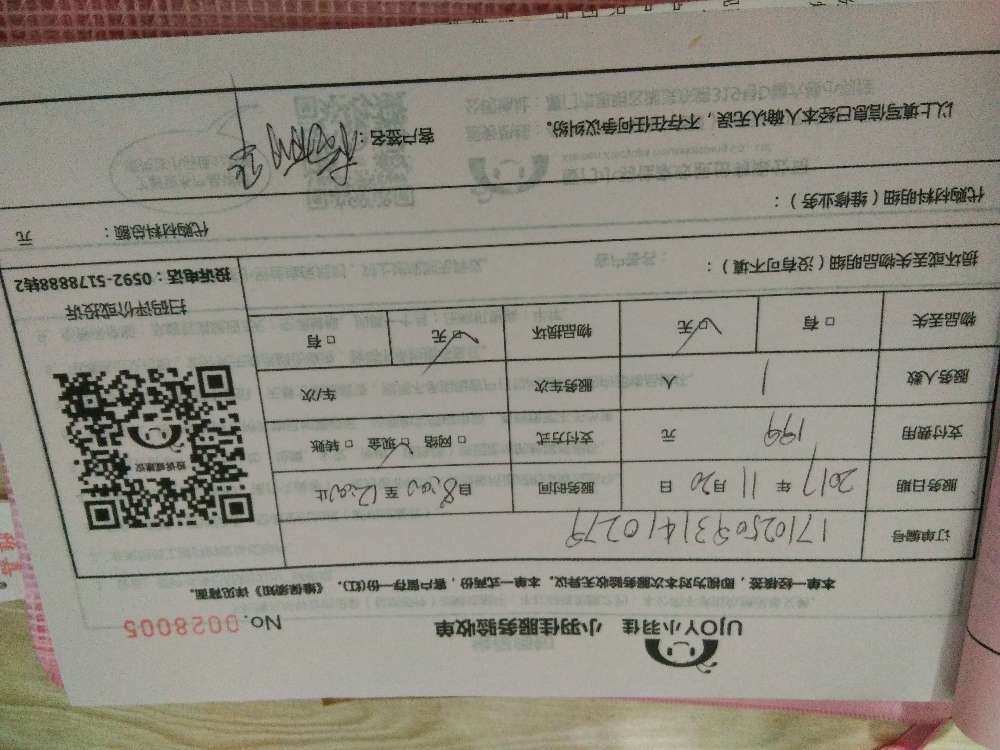 UJOY小羽佳 小羽佳服务验收单 No. 0028005
本单一经接签,即视为对本次服务验收无异议。本单一式两份,客户留存一份(红)。《维保须知》详见背面。
订单编号 1710250931410279
服务日期 2017 年 11 月 20 日 服务时间 自8:00 至12:00止
支付费用 199 元 支付方式 □ 网络 □ 现金 □ 转账
服务人数 1 人 服务车次 车/次
物品丢失 □ 有 □ 无 物品损坏 □ 无 □ 有
投诉或建议
扫码评价或投诉
投诉电话:0592-5178888转2
损坏或丢失物品明细(没有可不填):
代购材料明细(维修业务): 代购材料总额: 元
以上填写信息已经本人确认无误,不存在任何争议纠纷。 客户签名: